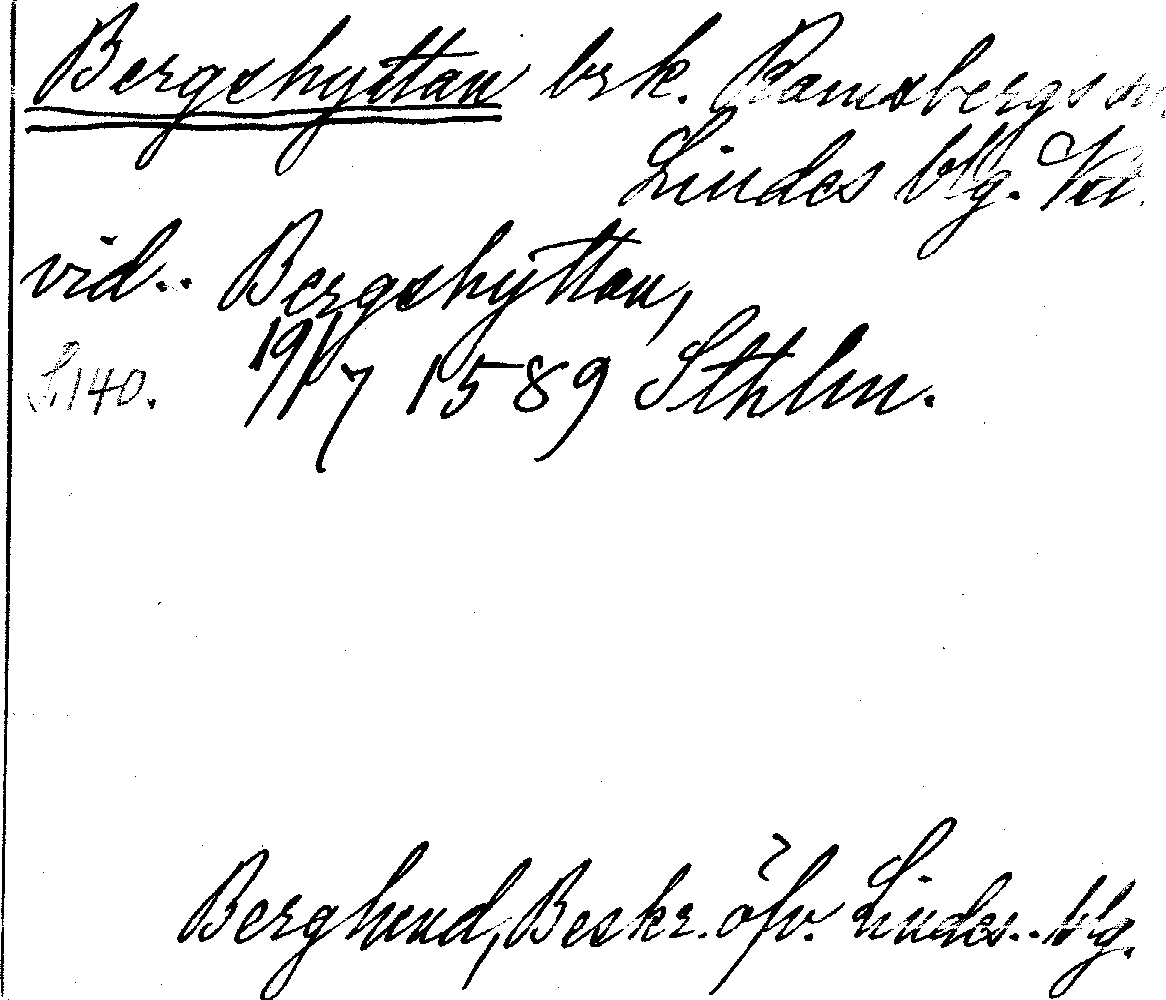 Bergshyttan brk. Ramsbergs sn.
Lindes blg. Vstml.
vid.. Bergshyttan,
S. 140. 19/7 1589 Sthlm.
Berglund, Beskr. öfv. Lindes.. blg.